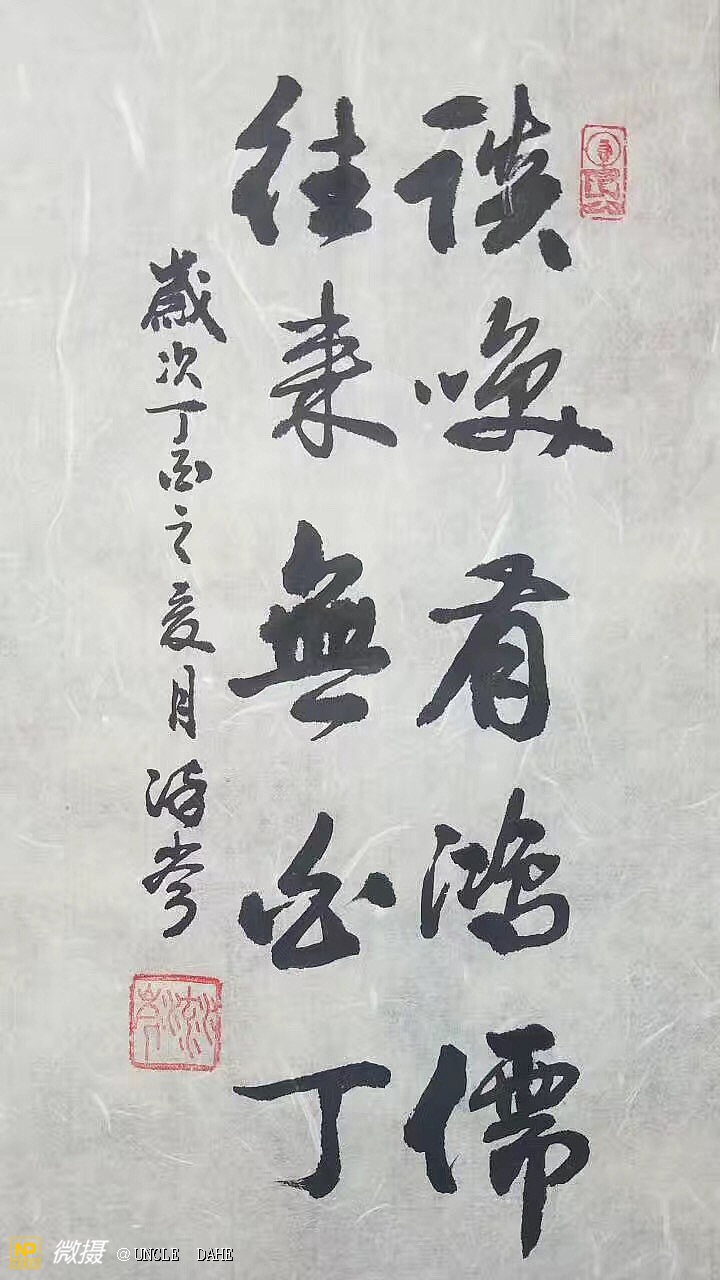 談咲有鴻儒
往来無白丁
歲次丁酉之夏月
微摄 @UNCLE DAHE